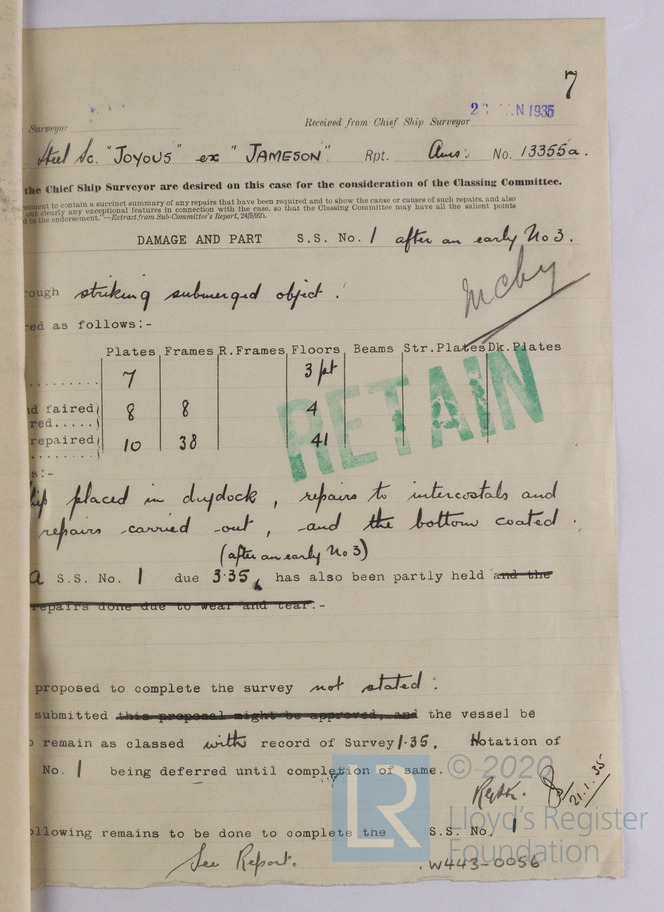 7
Surveyor
Received from Chief Ship Surveyor
1935
Steel Sc. "JOYOUS" ex "JAMESON" Rpt. Ams. No. 13355a.
the Chief Ship Surveyor are desired on this case for the consideration of the Classing Committee.
to contain a succinct summary of any repairs that have been required and to show the cause or causes of such repairs, and also
out clearly any exceptional features in connection with the case, so that the Classing Committee may have all the salient points
d in the endorsement."—Extract from Sub-Committee's Report, 24/5/92).
DAMAGE AND PART S.S. No. 1 after an early No 3.
ough striking submerged object.
ed as follows:-
Plates Frames R.Frames Floors Beams Str.Plates Dk.Plates
.......... 7 3 pt
d faired 8 8 4
red.....
repaired 10 38 41
........
s:-
RETAIN
ip placed in drydock, repairs to intercostals and
repairs carried out, and the bottom coated.
(after an early No 3)
a S.S. No. 1 due 3.35, has also been partly held and the
repairs done due to wear and tear:-
proposed to complete the survey not stated:
submitted this proposal might be approved, and the vessel be
remain as classed with record of Survey 1.35. Notation of
No. 1 being deferred until completion of same.
21.1.35
ollowing remains to be done to complete the S.S. No. 1
See Report.
W443-0056
© 2020
LR
Lloyd's Register
Foundation